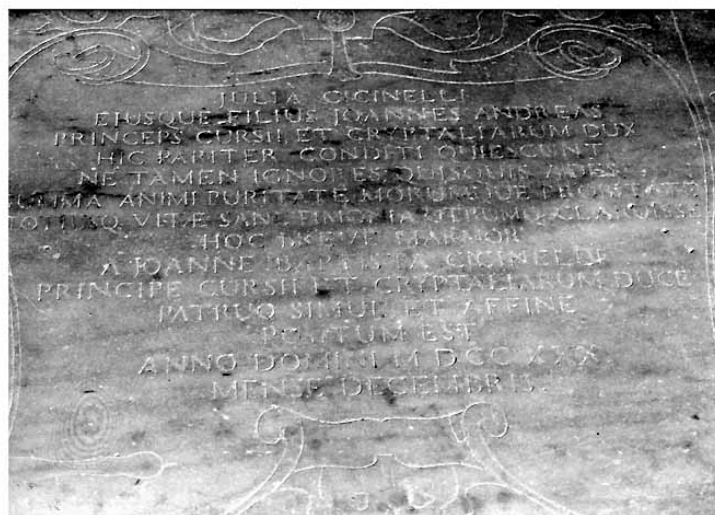 JULIA CICINELLI
EJUSQUE FILIUS JOANNES ANDREAS
PRINCEPS CURSII ET CRYPTALIARUM DUX
HIC PARITER CONDITI QUIESCUNT
NE TAMEN IGNORES QUISQUIS ADES
ANIMI PURITATE MORUMQUE
VITÆ SANCTIMONIA UTRUMQ CLARUISSE
HOC BREVE MARMOR
A JOANNE BAPTISTA CICINELLI
PRINCIPE CURSII ET CRYPTALIARUM DUCE
PATRUO SIMUL ET AFFINE
POSITUM EST
ANNO DOMINI M DCC XXX
MENSE DECEMBRIS